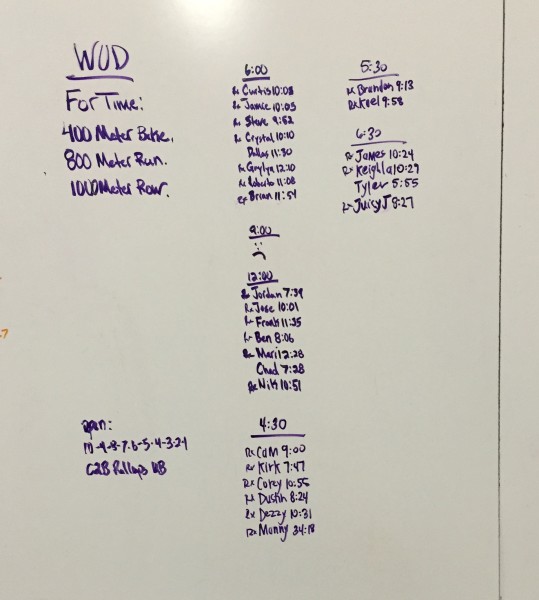 WOD
For Time:
400 Meter Bike.
800 Meter Run.
1000 Meter Row.
open:
10-9-8-7-6-5-4-3-2-1
C2B Pullups UB
6:00
Rx Curtis 10:08
Rx Jamie 10:05
Rx Steve 9:52
Rx Crystal 10:10
Dallas 11:30
Rx 12:10
Rx Roberto 11:08
Rx Brian 11:54
9:00
:(
12:00
Rx Jordan 7:39
Rx Jose 10:01
Rx Frank 11:35
Rx Ben 8:06
Rx Mari 12:28
Chad 7:28
Rx Nik 10:51
4:30
Rx Cam 9:00
Rx Kirk 7:47
Rx Corey 10:55
Rx Dustin 8:24
Rx Dezzy 10:31
Rx Manny 34:18
5:30
Rx Brandon 9:13
Rx Koel 9:58
6:30
Rx James 10:24
Rx Keighla 10:29
Tyler 5:55
Rx Juicy J 8:27